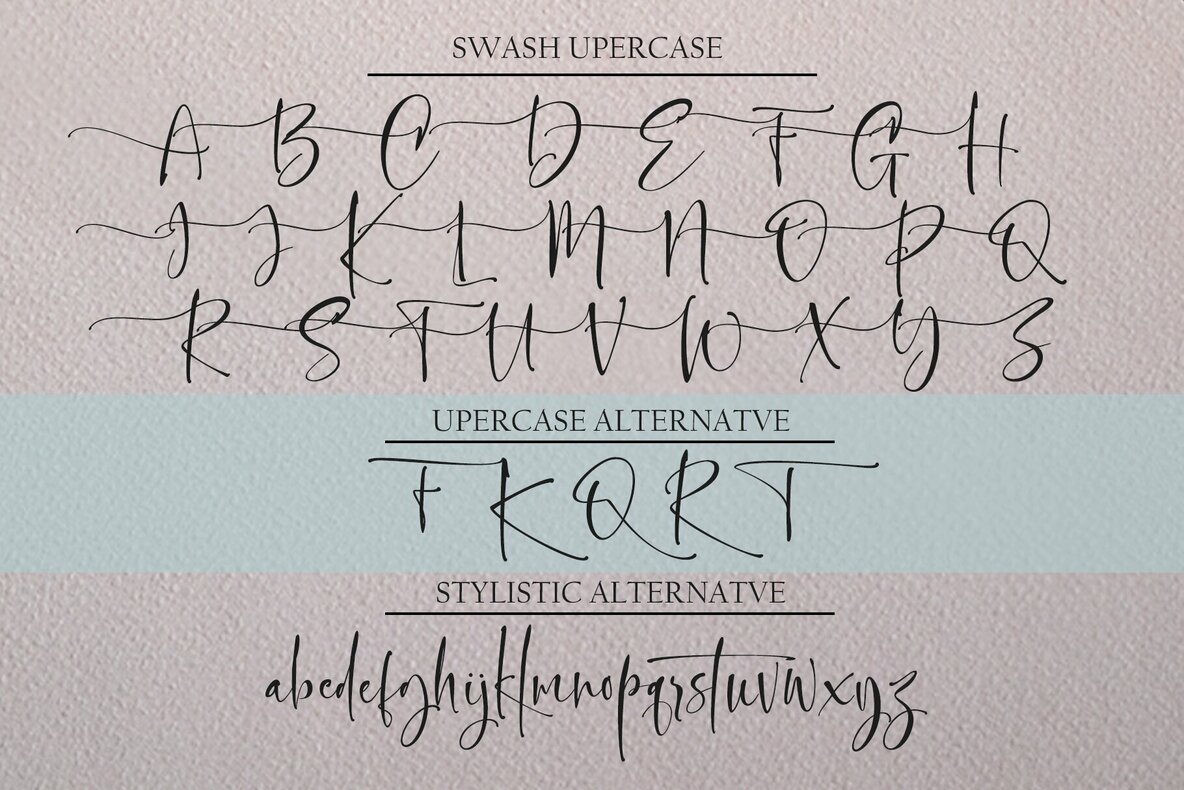 SWASH UPERCASE
A B C D E F G H
I J K L M N O P Q
R S T U V W X Y Z
UPERCASE ALTERNATVE
F K Q R T
STYLISTIC ALTERNATVE
abcdefghijklmnopqrstuvwxyz